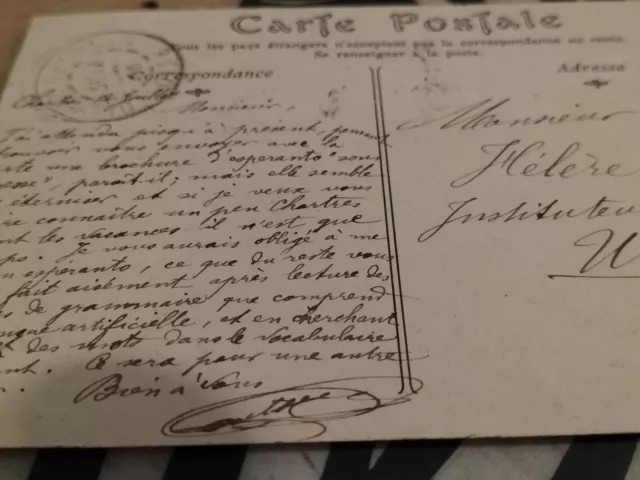 Carte Postale
Tous les pays étrangers n'acceptent pas la correspondance au recto.
Se renseigner à la poste.
Correspondance
Adresse
Chartres 12 Juillet
Monsieur,
J'ai attendu jusqu'à présent, pensant
pouvoir vous envoyer avec la
une brochure d'"esperanto" sous
presse, paraît-il; mais elle semble
s'éterniser et si je veux vous
faire connaître un peu Chartres
avant les vacances il n'est que
temps. Je vous aurais obligé à me
en espéranto, ce que du reste vous
fait aisément après lecture des
de grammaire que comprend
langue artificielle, et en cherchant
des mots dans le vocabulaire
Ce sera pour une autre
Bien à Vous
Monsieur
Hélère
Instituteu